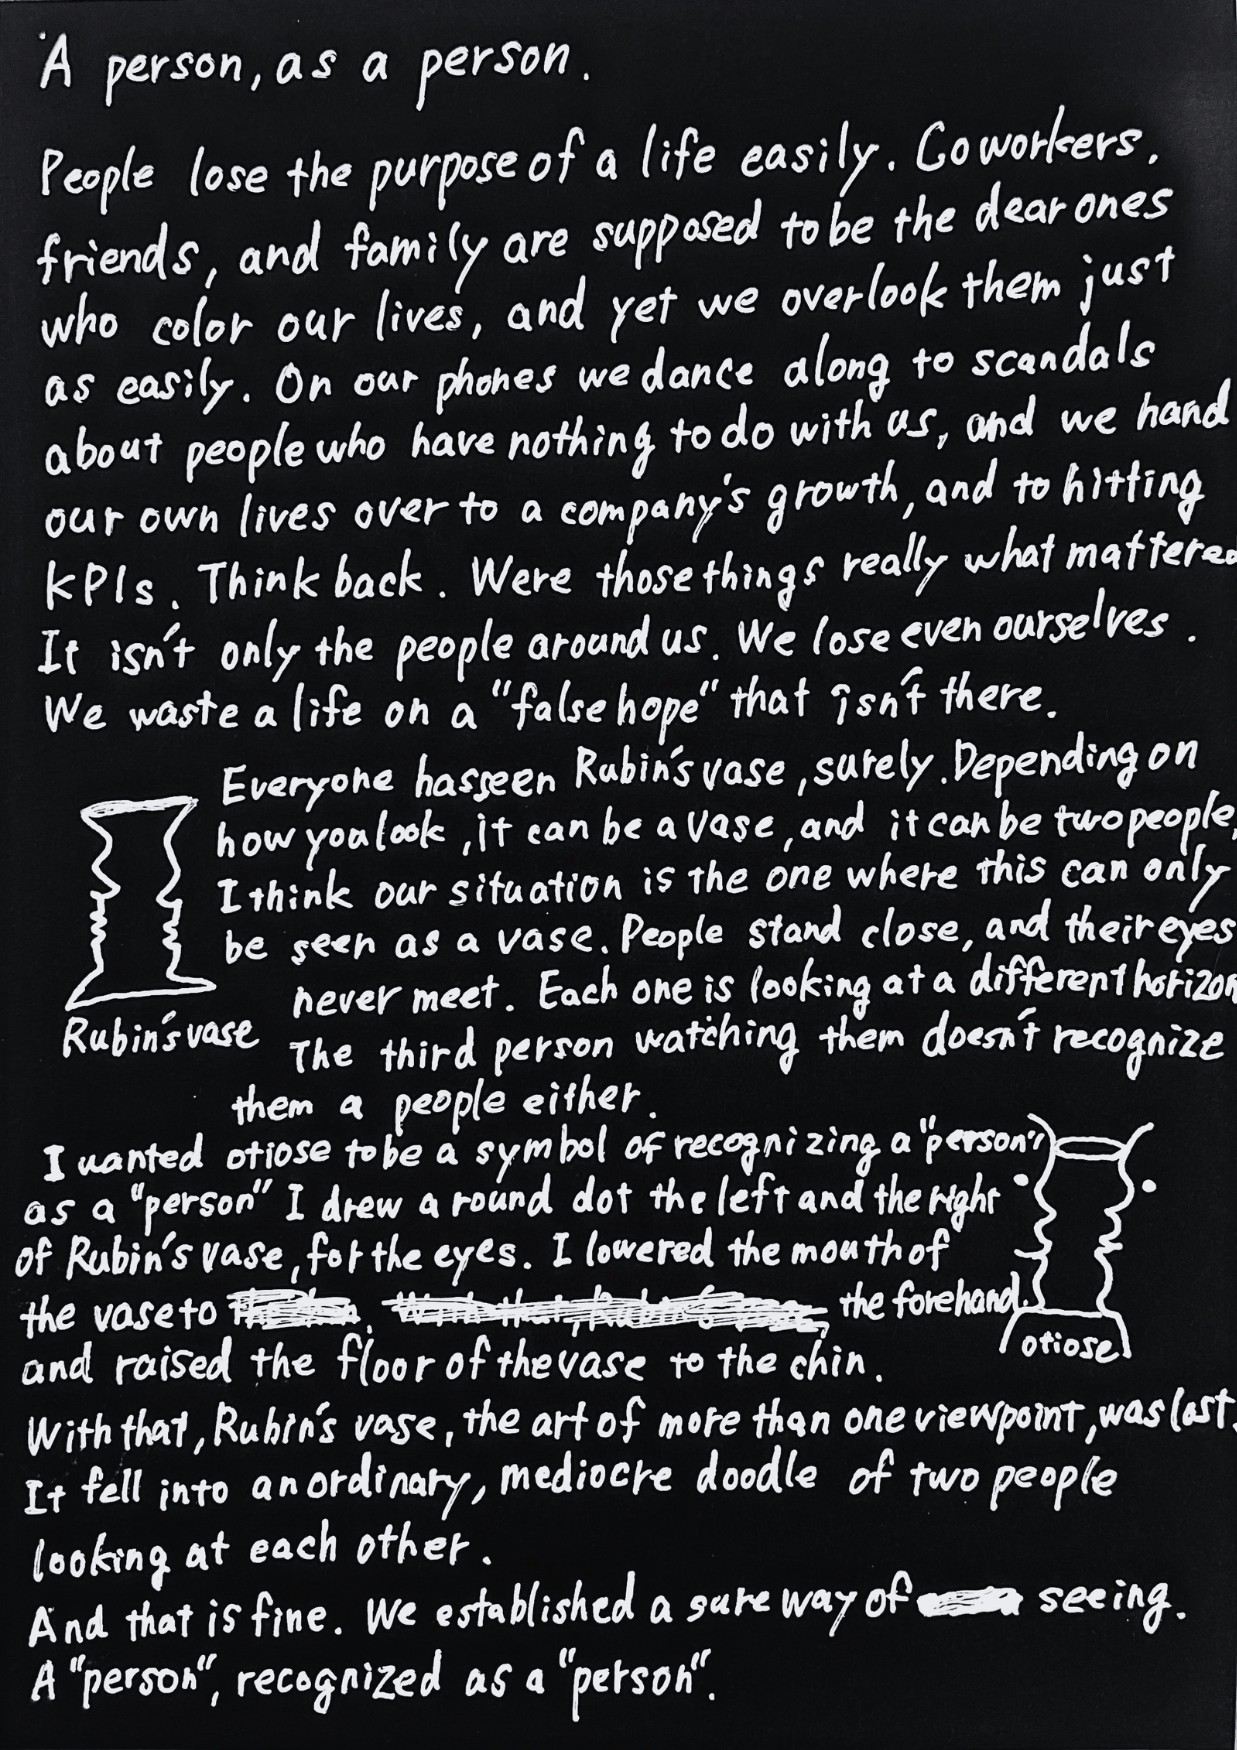 A person, as a person.
People lose the purpose of a life easily. Coworkers,
friends, and family are supposed to be the dear ones
who color our lives, and yet we overlook them just
as easily. On our phones we dance along to scandals
about people who have nothing to do with us, and we hand
our own lives over to a company's growth, and to hitting
KPIs. Think back. Were those things really what mattered
It isn't only the people around us. We lose even ourselves.
We waste a life on a "false hope" that isn't there.
Everyone hasseen Rubin's vase, surely. Depending on
how you look, it can be a vase, and it can be two people,
I think our situation is the one where this can only
be seen as a vase. People stand close, and their eyes
never meet. Each one is looking at a different horizon
The third person watching them doesn't recognize
them a people either.
Rubin's vase
I wanted otiose to be a symbol of recognizing a "person"
as a "person" I drew a round dot the left and the right
of Rubin's vase, for the eyes. I lowered the mouth of
the vase to the forehand.
and raised the floor of the vase to the chin.
otiose
With that, Rubin's vase, the art of more than one viewpoint, was lost.
It fell into an ordinary, mediocre doodle of two people
looking at each other.
And that is fine. We established a sure way of seeing.
A "person", recognized as a "person".